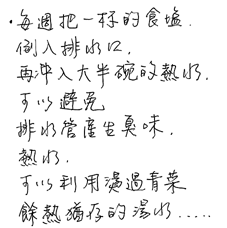 ·每週把一杯的食塩.
倒入排水口.
再沖入大半碗的熱水.
可以避免
排水管產生臭味.
熱水.
可以利用燙過青菜
餘熱猶存的湯水.....